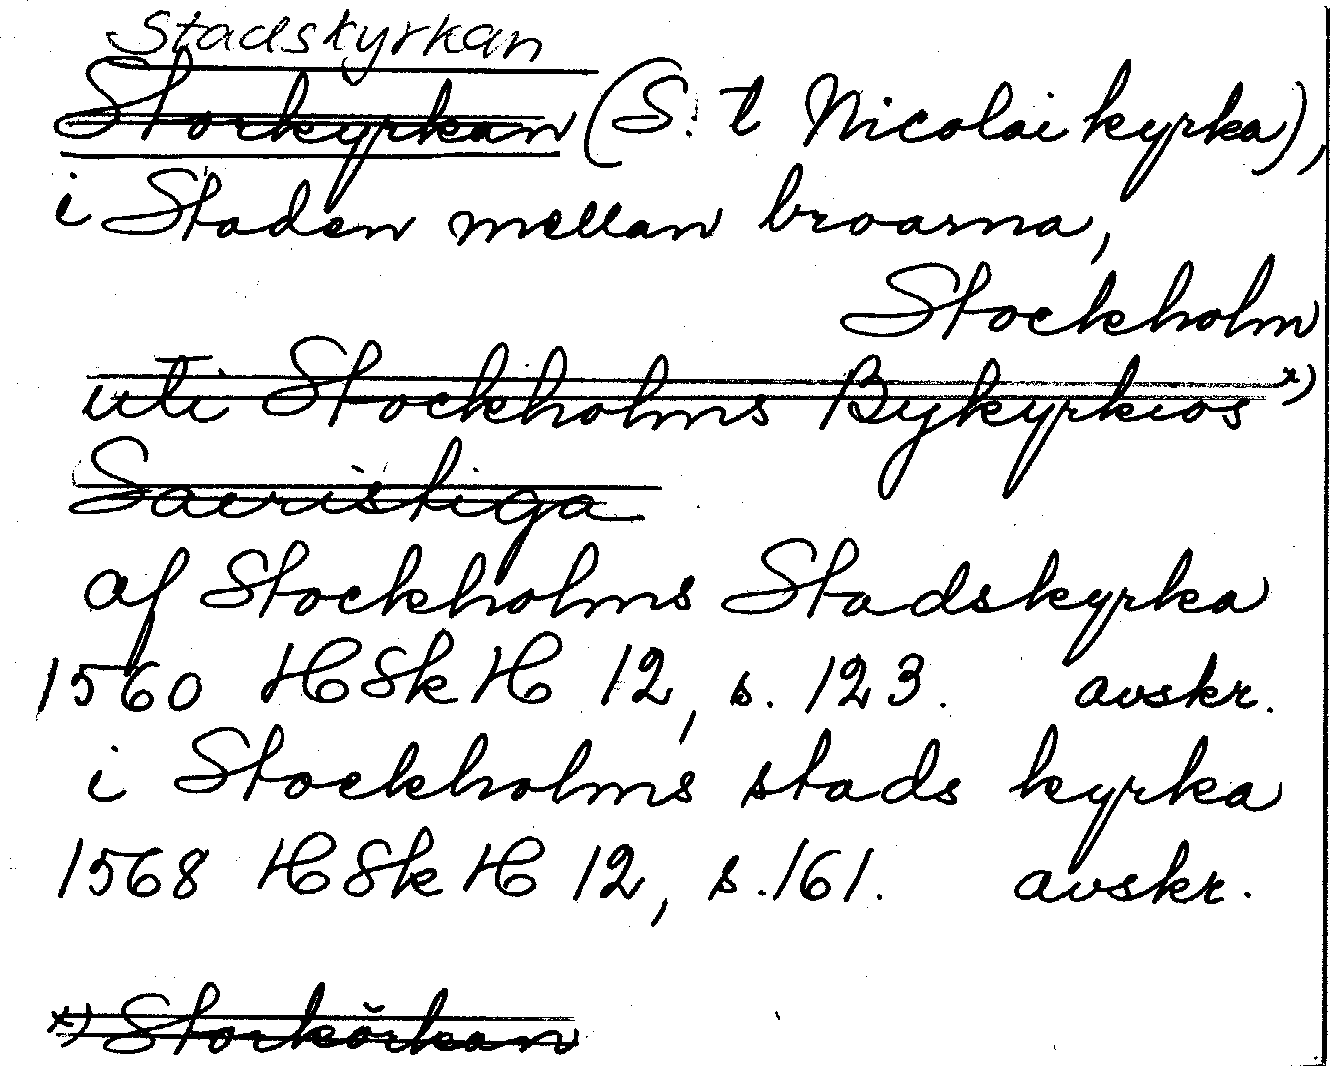 Stadskyrkan
Storkyrkan (S:t Nicolai kyrka),
i Staden mellan broarna,
Stockholm
uti Stockholms Bykyrkios x)
Sacristiga
af Stockholms Stadskyrka
1560 HSkH 12, s. 123. avskr.
i Stockholms stads kyrka
1568 HSkH 12, s. 161. avskr.
x) Storkörkan